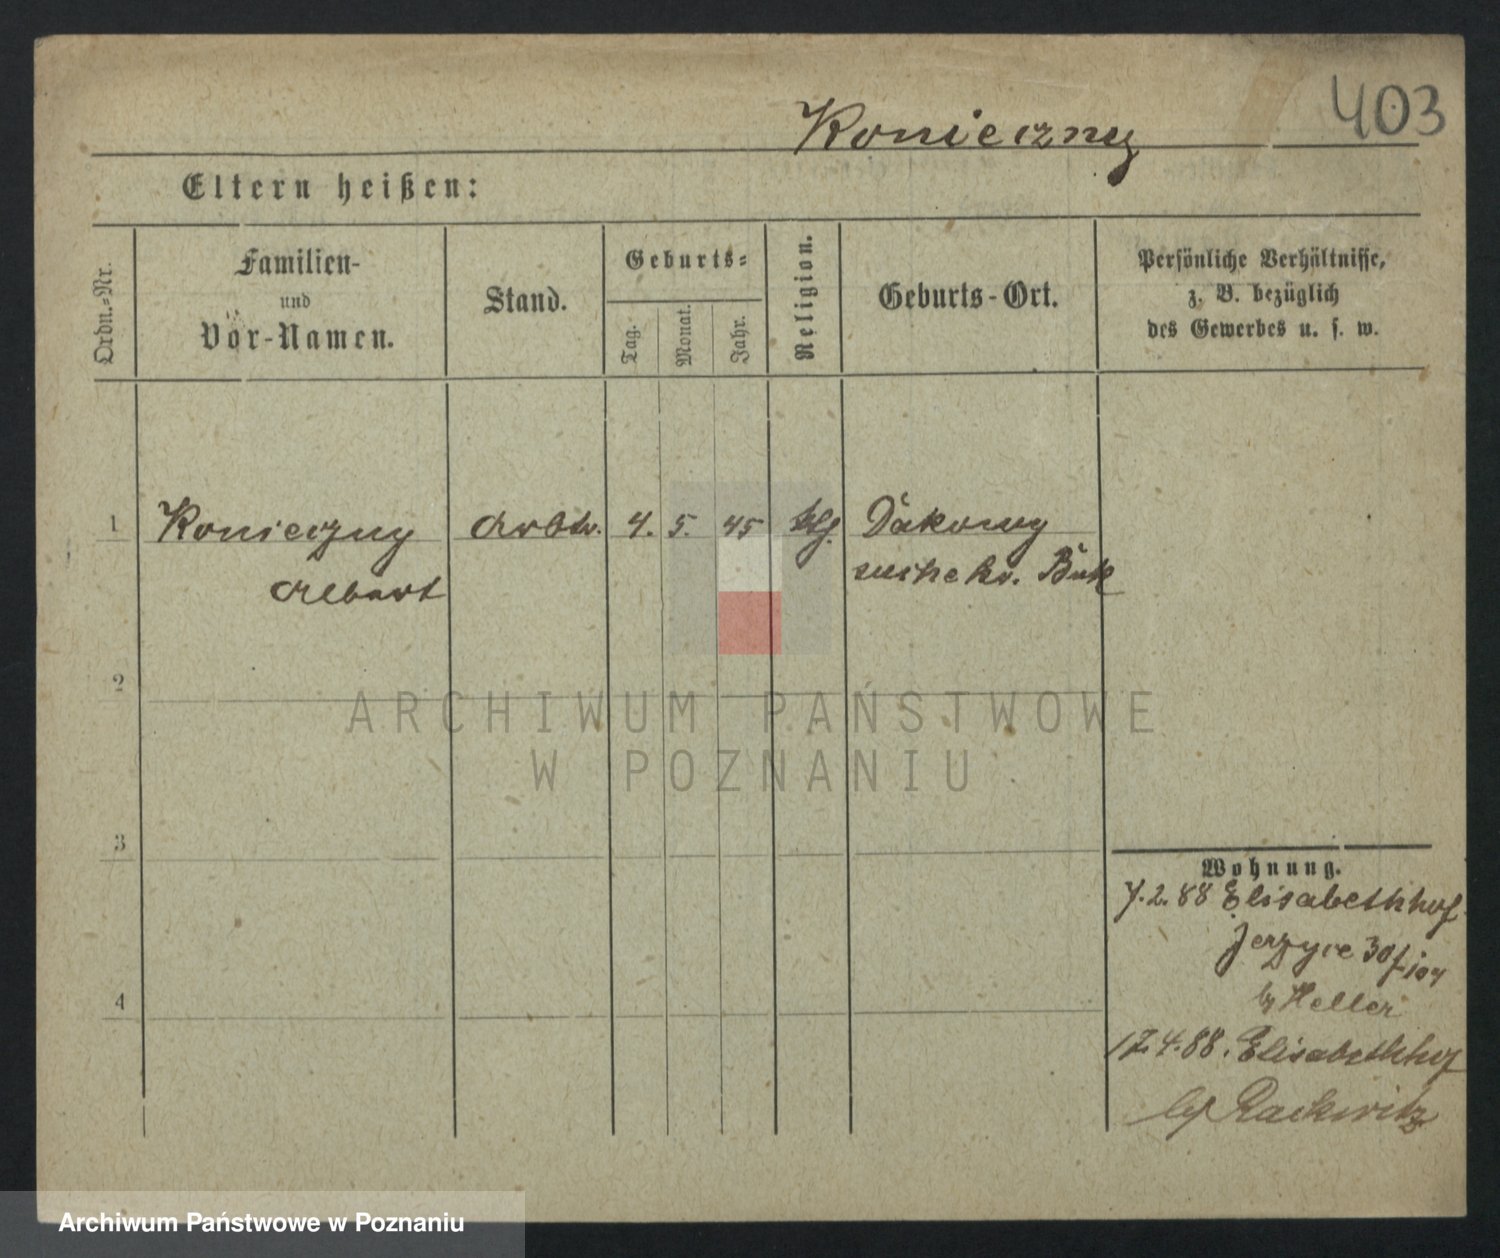 403
Konieczny
Eltern heißen:
Ordn.-Nr.
Familien-
und
Vor-Namen.
Stand.
Geburts-
Tag.
Monat.
Jahr.
Religion.
Geburts-Ort.
Persönliche Verhältnisse,
z. B. bezüglich
des Gewerbes u. s. w.
1 Konieczny Arbtr. 4. 5. 45 Dakowy
Albert suche Kr. Buk
2
ARCHIWUM PAŃSTWOWE
W POZNANIU
3
Wohnung.
7.2.88 Elisabethhof
Jerzyce
b/ Heller
4
17.4.88. Elisabethhof
b/ Rackwitz
Archiwum Państwowe w Poznaniu